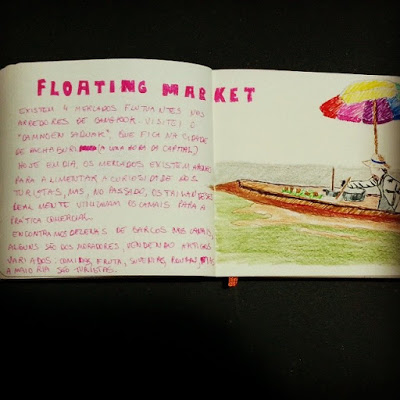 FLOATING MARKET
EXISTEM 4 MERCADOS FLUTUANTES NAS
ARREDORES DE BANGKOK. VISITEI O
"DAMNOEN SADUAK", QUE FICA NA CIDADE
DE RATCHABURI (A UMA HORA DA CAPITAL)
HOJE EM DIA, OS MERCADOS EXISTEM
PARA ALIMENTAR A CURIOSIDADE DOS
TURISTAS, MAS, NO PASSADO, OS TAILANDESES
REALMENTE UTILIZAVAM OS CANAIS PARA A
PRÁTICA COMERCIAL.
ENCONTRAMOS DEZENAS DE BARCOS NOS CANAIS,
ALGUNS SÃO DOS MORADORES, VENDENDO ARTIGOS
VARIADOS: COMIDAS, FRUTA, SUVENIRS, ROUPAS,
A MAIORIA SÃO TURISTAS.